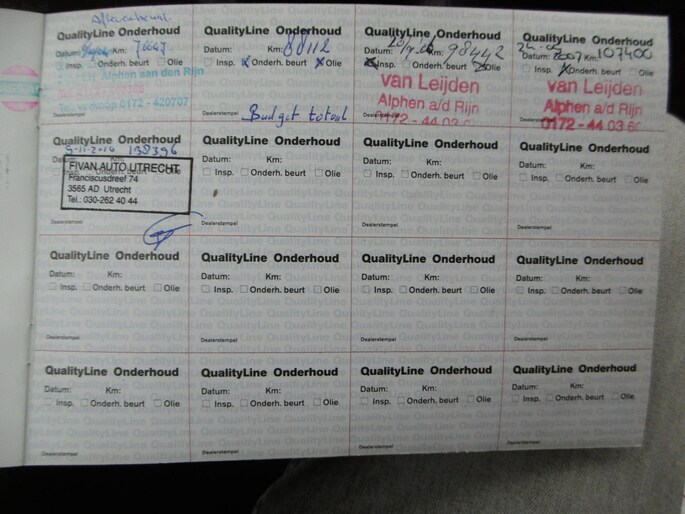 QualityLine Onderhoud
Datum: Km: 76667
Insp. Onderh. beurt Olie
Alphen aan den Rijn
0172 - 420707
QualityLine Onderhoud
Datum: Km: 88112
Insp. Onderh. beurt Olie
Dealerstempel
Budget totaal
QualityLine Onderhoud
Datum: Km: 98442
Insp. Onderh. beurt Olie
van Leijden
Alphen a/d Rijn
QualityLine Onderhoud
Datum: 2007 Km: 107400
Insp. Onderh. beurt Olie
van Leijden
Alphen a/d Rijn
0172 - 44 03
QualityLine Onderhoud
138396
Olie
FIVAN AUTO UTRECHT
Franciscusdreef 74
3565 AD Utrecht
Tel.: 030-262 40 44
QualityLine Onderhoud
Datum: Km:
Insp. Onderh. beurt Olie
Dealerstempel
QualityLine Onderhoud
Datum: Km:
Insp. Onderh. beurt Olie
Dealerstempel
QualityLine Onderhoud
Datum: Km:
Insp. Onderh. beurt Olie
Dealerstempel
QualityLine Onderhoud
Datum: Km:
Insp. Onderh. beurt Olie
Dealerstempel
QualityLine Onderhoud
Datum: Km:
Insp. Onderh. beurt Olie
Dealerstempel
QualityLine Onderhoud
Datum: Km:
Insp. Onderh. beurt Olie
Dealerstempel
QualityLine Onderhoud
Datum: Km:
Insp. Onderh. beurt Olie
Dealerstempel
QualityLine Onderhoud
Datum: Km:
Insp. Onderh. beurt Olie
Dealerstempel
QualityLine Onderhoud
Datum: Km:
Insp. Onderh. beurt Olie
Dealerstempel
QualityLine Onderhoud
Datum: Km:
Insp. Onderh. beurt Olie
Dealerstempel
QualityLine Onderhoud
Datum: Km:
Insp. Onderh. beurt Olie
Dealerstempel